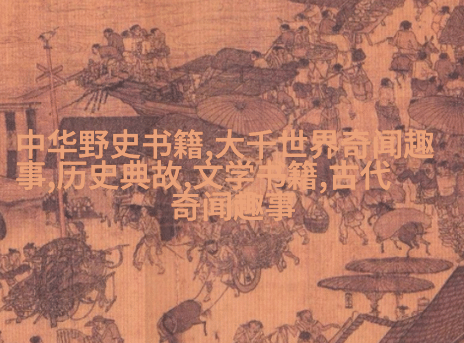 中华野史书籍,大千世界奇闻趣
事,历史典故,文学书籍,古代
奇闻趣事